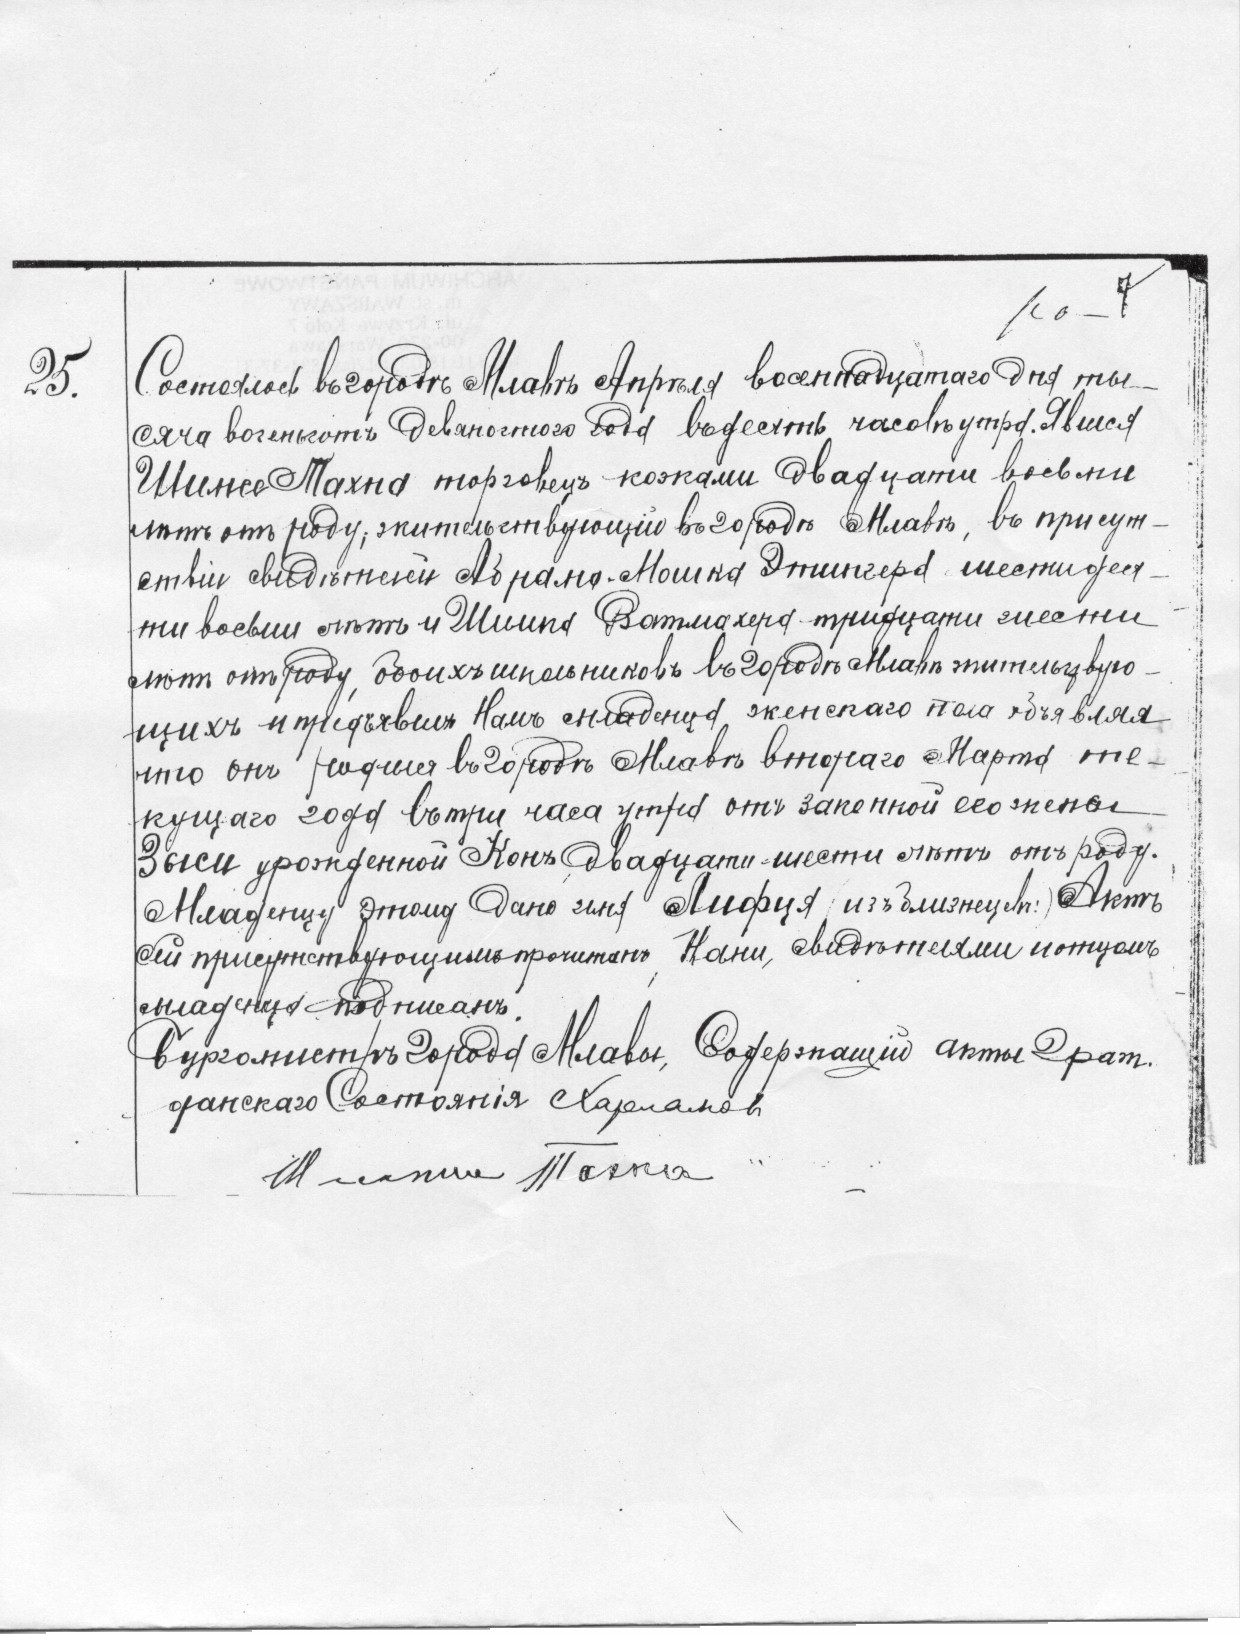 25.
Состоялось въ городѣ Млавѣ Апрѣля восемнадцатаго дня ты-
сяча восемьсотъ девяностого года въ десять часовъ утра. Явился
Шимсе Тахна торговецъ кожами двадцати восьми
лѣтъ отъ роду, жительствующій въ городѣ Млавѣ, въ присут-
ствіи свидѣтелей Абрама-Мошка Этингера шестидеся-
ти восьми лѣтъ и Шимка Ватмахера тридцати шести
лѣтъ отъ роду, обоихъ школьниковъ въ городѣ Млавѣ жительствую-
щихъ и предъявилъ Намъ младенца женскаго пола объявляя
что онъ родился въ городѣ Млавѣ второго Марта те-
кущаго года въ три часа утра отъ законной его жены
Зыси урожденной Конъ, двадцати-шести лѣтъ отъ роду.
Младенцу этому дано имя Лифця (изъ близнецовъ:) Актъ
сей присутствующимъ прочитанъ, Нами, свидѣтелями и отцомъ
младенца подписанъ.
Бургомистръ города Млавы, Содержащій акты Граж.
данскаго Состоянія Харламовъ